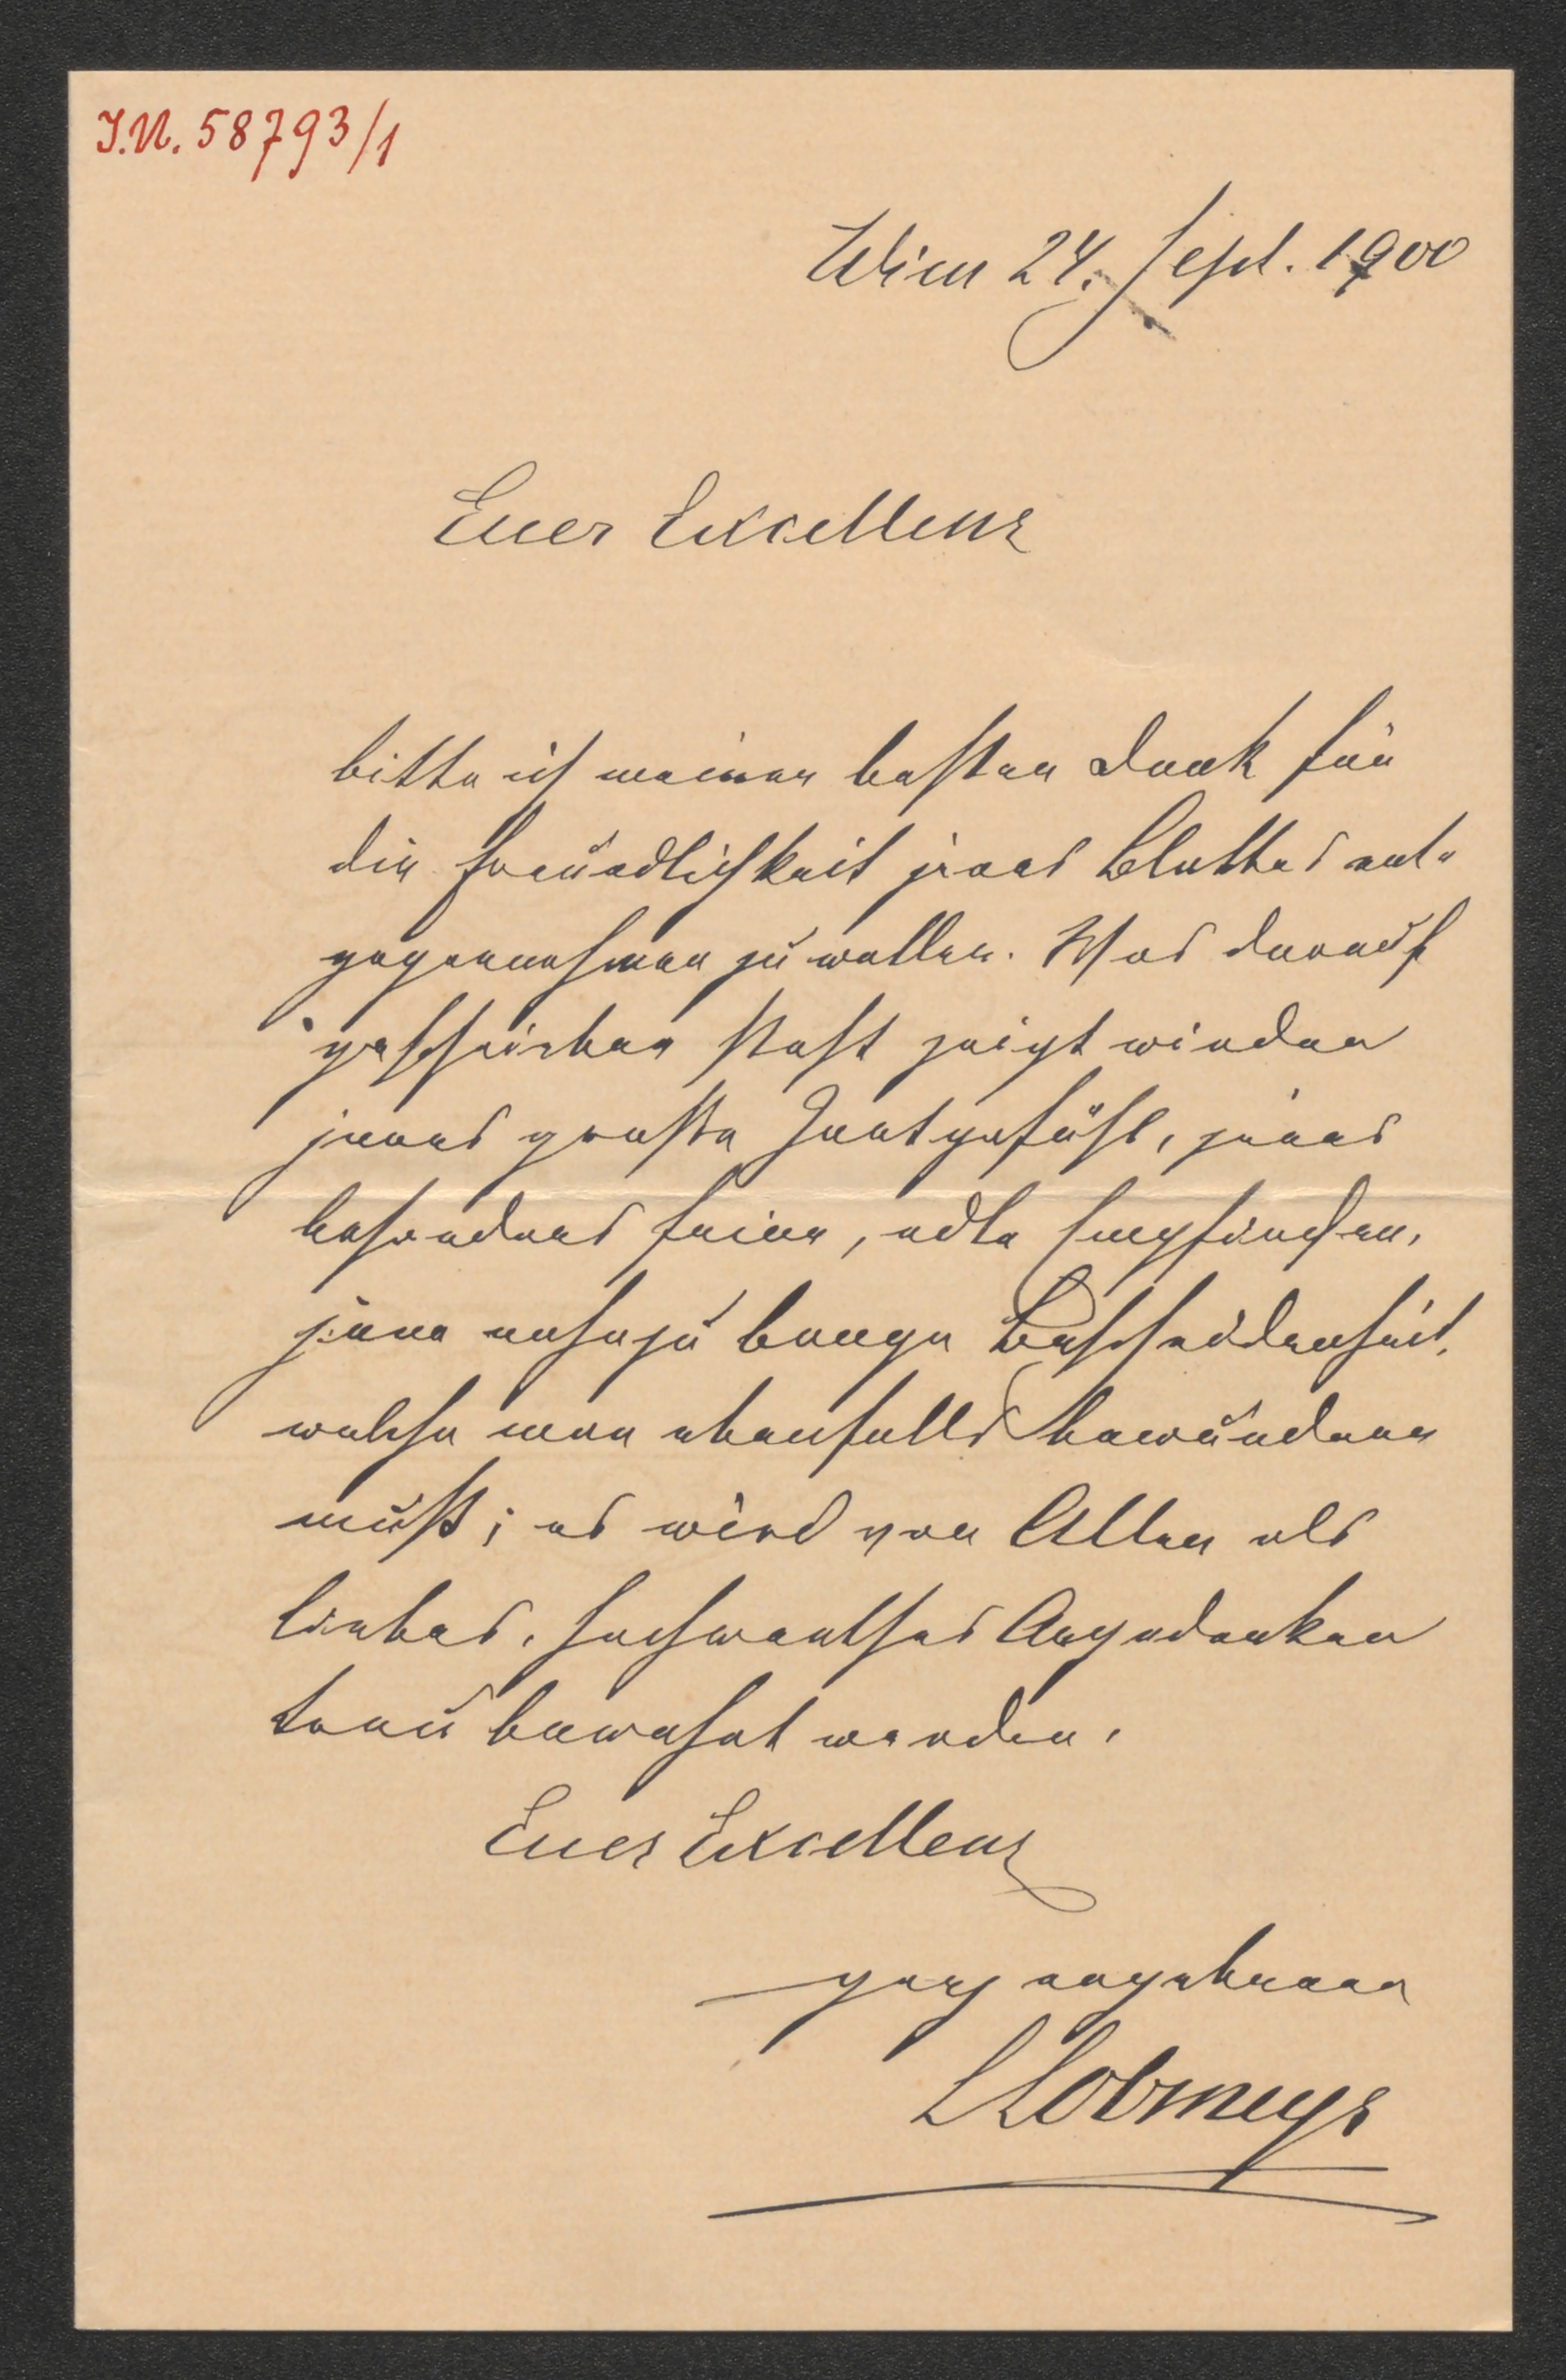 I.N. 58793/1
Wien 24. Sept. 1900
Euer Excellenz
bitte ich meinen besten Dank für
die Freundlichkeit jenes Blattes ent-
gegennehmen zu wollen. Was darauf
geschrieben steht zeigt wieder
jenes große Zartgefühl, jenes
besonders feine, edle Empfinden,
jene nahezu bange Bescheidenheit,
welche man ebenfalls bewundern
muß; es wird von Allen als
liebes, hochwerthes Angedenken
treu bewahrt werden.
Euer Excellenz
ganz ergebener
LLobmeyr